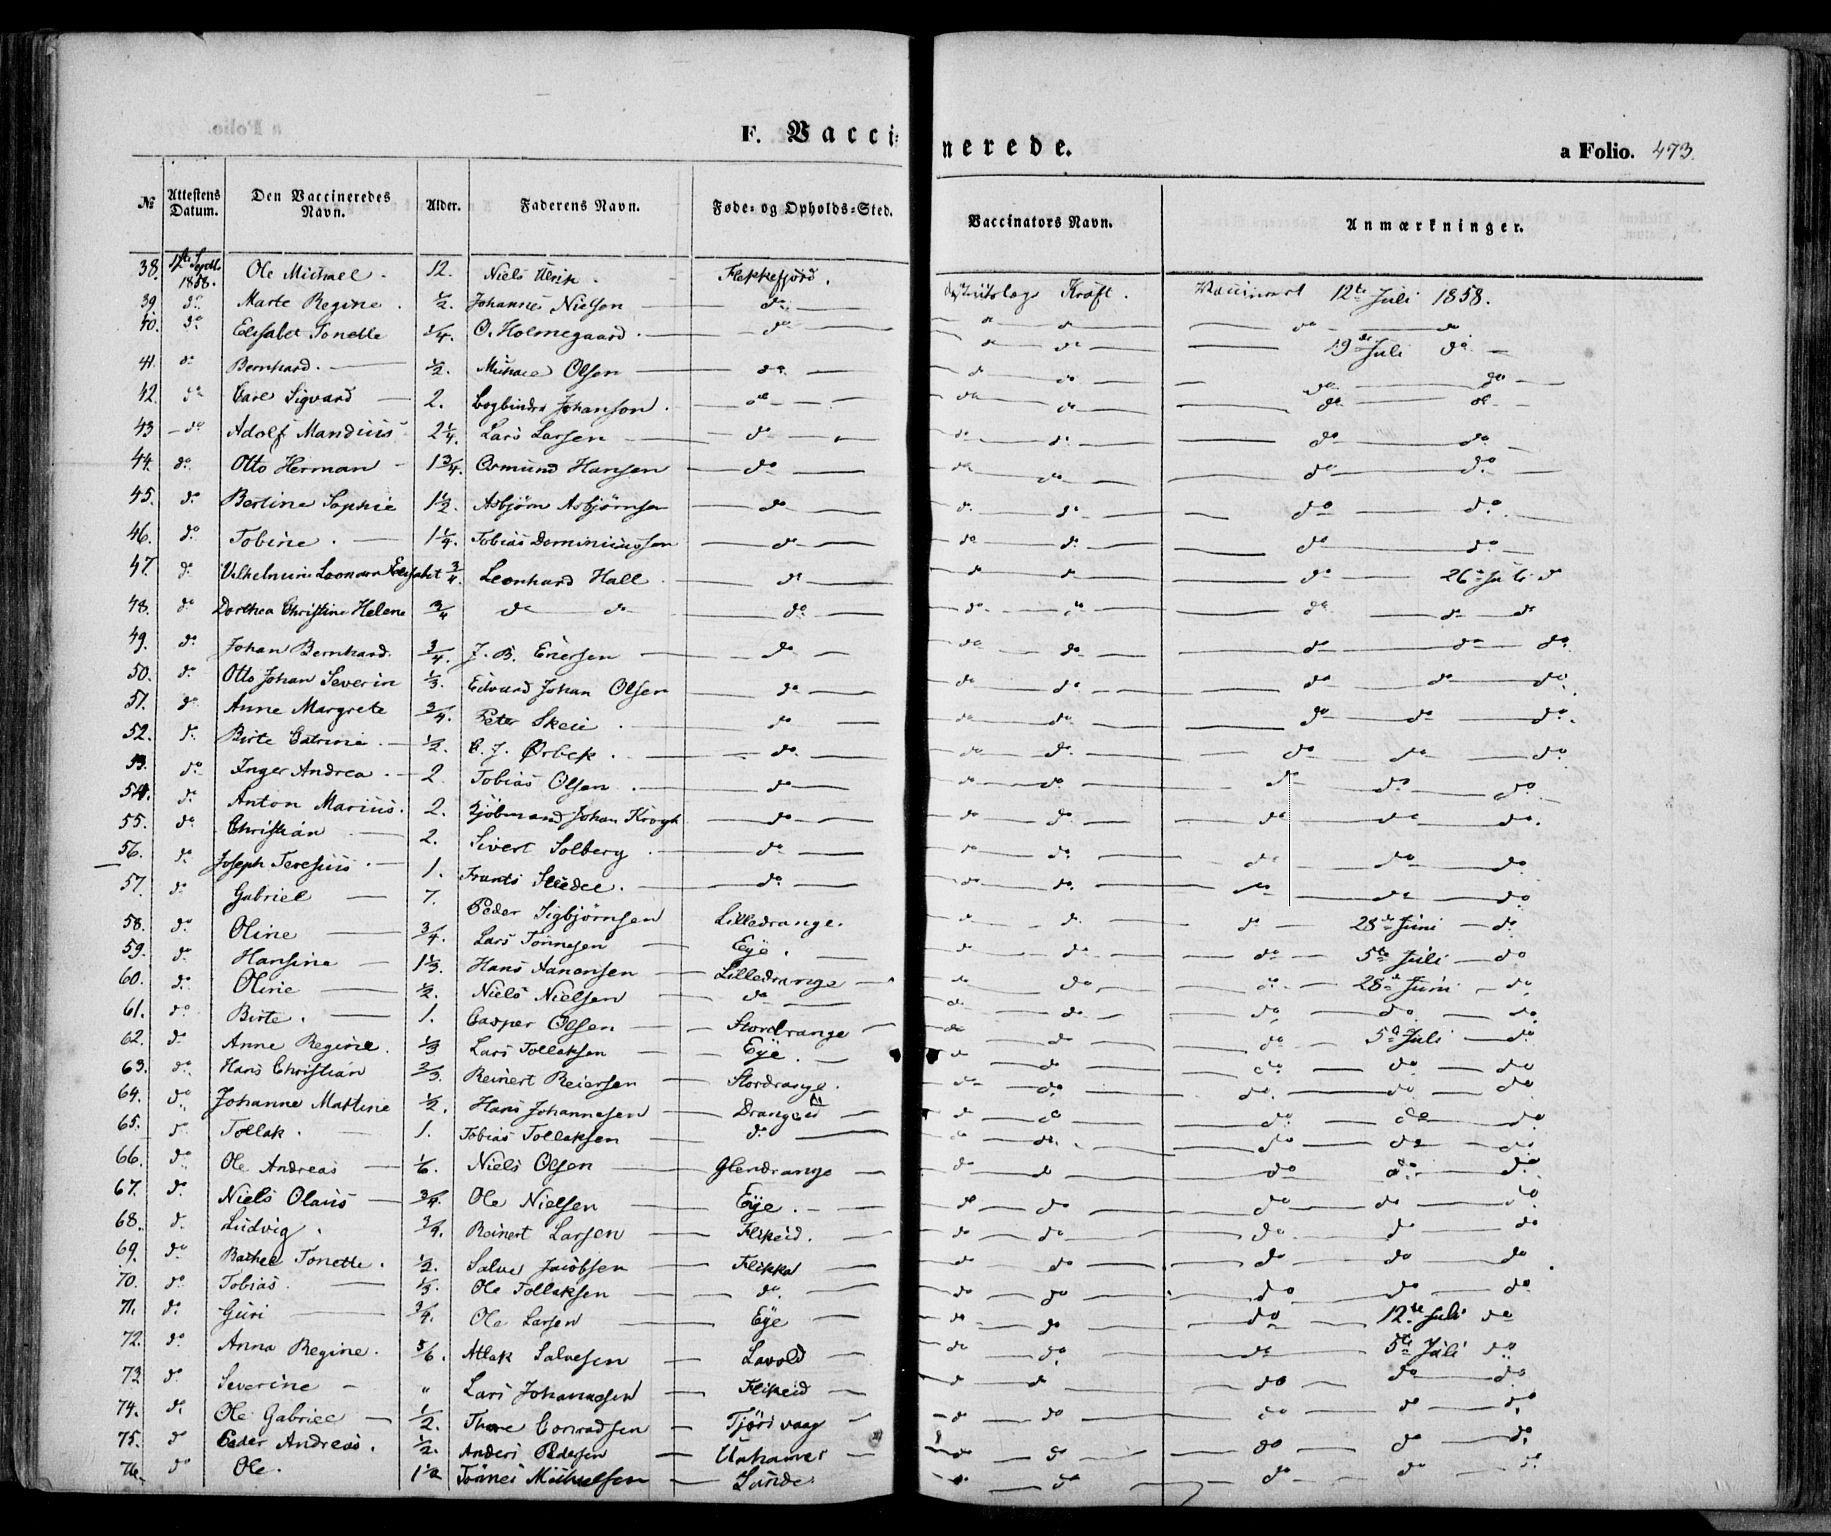 F. Vaccinerede.
a Folio. 473.
№ Attestens Datum. Den Vaccineredes Navn. Alder. Faderens Navn. Føde- og Opholds-Sted. Vaccinators Navn. Anmærkninger.
38. 1858. Ole Michael. 12. Niels Ulrik. Flekkefjord. Kraft. Vaccineret 12te Juli 1858.
39 do Marte Regine ½. Johannes Nielsen do do do do do
40. do Elisabet Tonette ¾. O. Holmegaard. do do do 19de Juli do
41. do Bernhard. ½. Michael Olsen do do do do do
42. do Carl Sigvard 2. Bogbinder Johanson. do do do do do
43 do Adolf Mandius 2¼. Lars Larsen do do do do do
44. do Otto Herman 1¾. Osmund Hansen do do do do do
45. do Bertine Sophie 1½. Asbjørn Asbjørnsen do do do do do
46. do Tobine. 1¼. Tobias Dominiussen do do do do do
47. do Leonhard Hall do do do do 26de Juli do
48. do Dorthea Christine Helene ¾ do do do do do do do do
49. do Johan Bernhard. ¾. J. B. do do do do do do
50. do Otto Johan Severin ⅓. Edvard Johan Olsen do do do do do do
51. do Anne Margrete ¾. Peter Skeie do do do do do do
52. do Birte Catrine ½. C. J. Ørbek. do do do do do do
53. do Inger Andrea. 2 Tobias Olsen. do do do do do do
54. do Anton Marius. 2. Kjøbmand Johan Krogh do do do do do do
55. do Christian 2. Sivert Solberg do do do do do do
56. do Joseph Teresius. 1. Frants do do do do do do
57. do Gabriel 7. Peder Sigbjørnsen Lilledrange. do do do 28de Juni do
58. do Oline ¾. Lars Tønnesen Eye. do do do 5te Juli do
59. do Hansine 1⅓. Hans Aanensen Lilledrange do do do 28de Juni do
60. do Oline ½. Niels Nielsen do do do do do do
61. do Birte. 1. Casper Olsen Stordrange do do do 5te Juli do
62. do Anne Regine. ⅓ Lars Tollaksen Eye. do do do do do
63. do Hans Christian ⅔. Reinert Reiersen Stordrange. do do do do do
64. do Johanne Martine ½. Hans Johannesen Drangeid do do do do
65. do Tollak. 1. Tobias Tollaksen do do do do do do
66. do Ole Andreas ⅙. Niels Olsen Glendrange do do do do do
67. do Niels Olaus ¾. Ole Nielsen Eye. do do do do do
68. do Ludvig. ¾. Reinert Larsen Flikeid. do do do do do
69. do Rachel Tonette. ½. Salve Jacobsen Flikka do do do do do
70. do Tobias ⅓. Ole Tollaksen do. do do do do do
71. do Guri ¾. Ole Larsen Eye do do do 12te Juli do
72. do Anna Regine. 5/6. Atlak Salvesen Lavold do do do 5te Juli do
73 do Severine " Lars Johannesen Flikeid do do do do do
74. do Ole Gabriel ½. Thore Conradsen Tjørsvaag do do do do do
75. do Peder Andreas. ½. Anders Pedersen do do do do do
76. do Ole. 1½ Tønnes Michelsen Sunde do do do do do